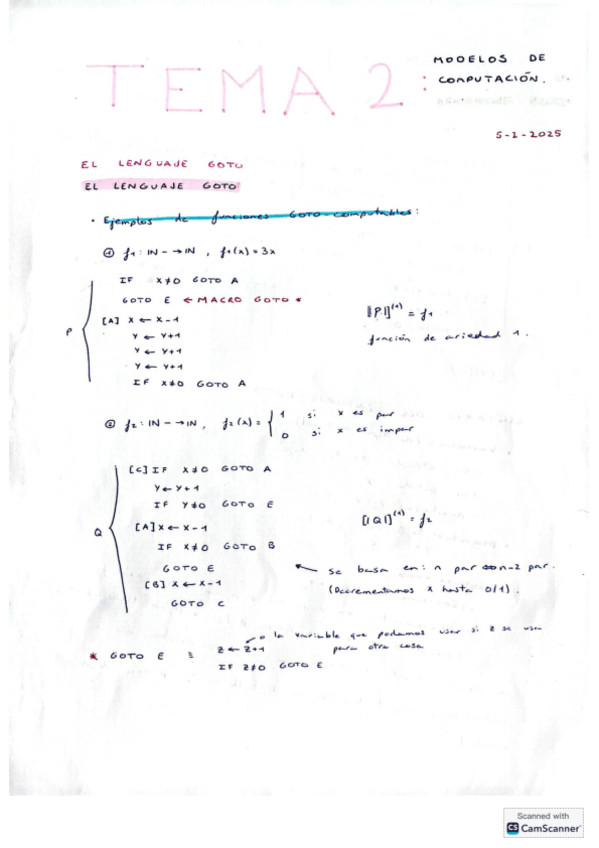 TEMA 2 :
MODELOS DE
COMPUTACIÓN.
5-2-2025
EL LENGUAJE GOTO
EL LENGUAJE GOTO
· Ejemplos de funciones GOTO-computables:
① f₁: IN - → IN , f₁(x) = 3x
P
IF X≠0 GOTO A
GOTO E ← MACRO GOTO *
[A] X ← X-1
Y ← Y+1
Y ← Y+1
Y ← Y+1
IF X≠0 GOTO A
[|P|]⁽¹⁾ = f₁
función de ariedad 1.
② f₂: IN - → IN, f₂(x) = { 1 si x es par
0 si x es impar
Q
[C] IF X≠0 GOTO A
Y ← Y+1
IF Y≠0 GOTO E
[A] X ← X-1
IF X≠0 GOTO B
GOTO E
[B] X ← X-1
GOTO C
[|Q|]⁽¹⁾ = f₂
← se basa en: n par ⇔ n-2 par.
(Decrementamos x hasta 0/1).
* GOTO E ≡ Z ← Z+1
IF Z≠0 GOTO E
→ o la variable que podamos usar si Z se usa
para otra cosa
Scanned with
CS CamScanner